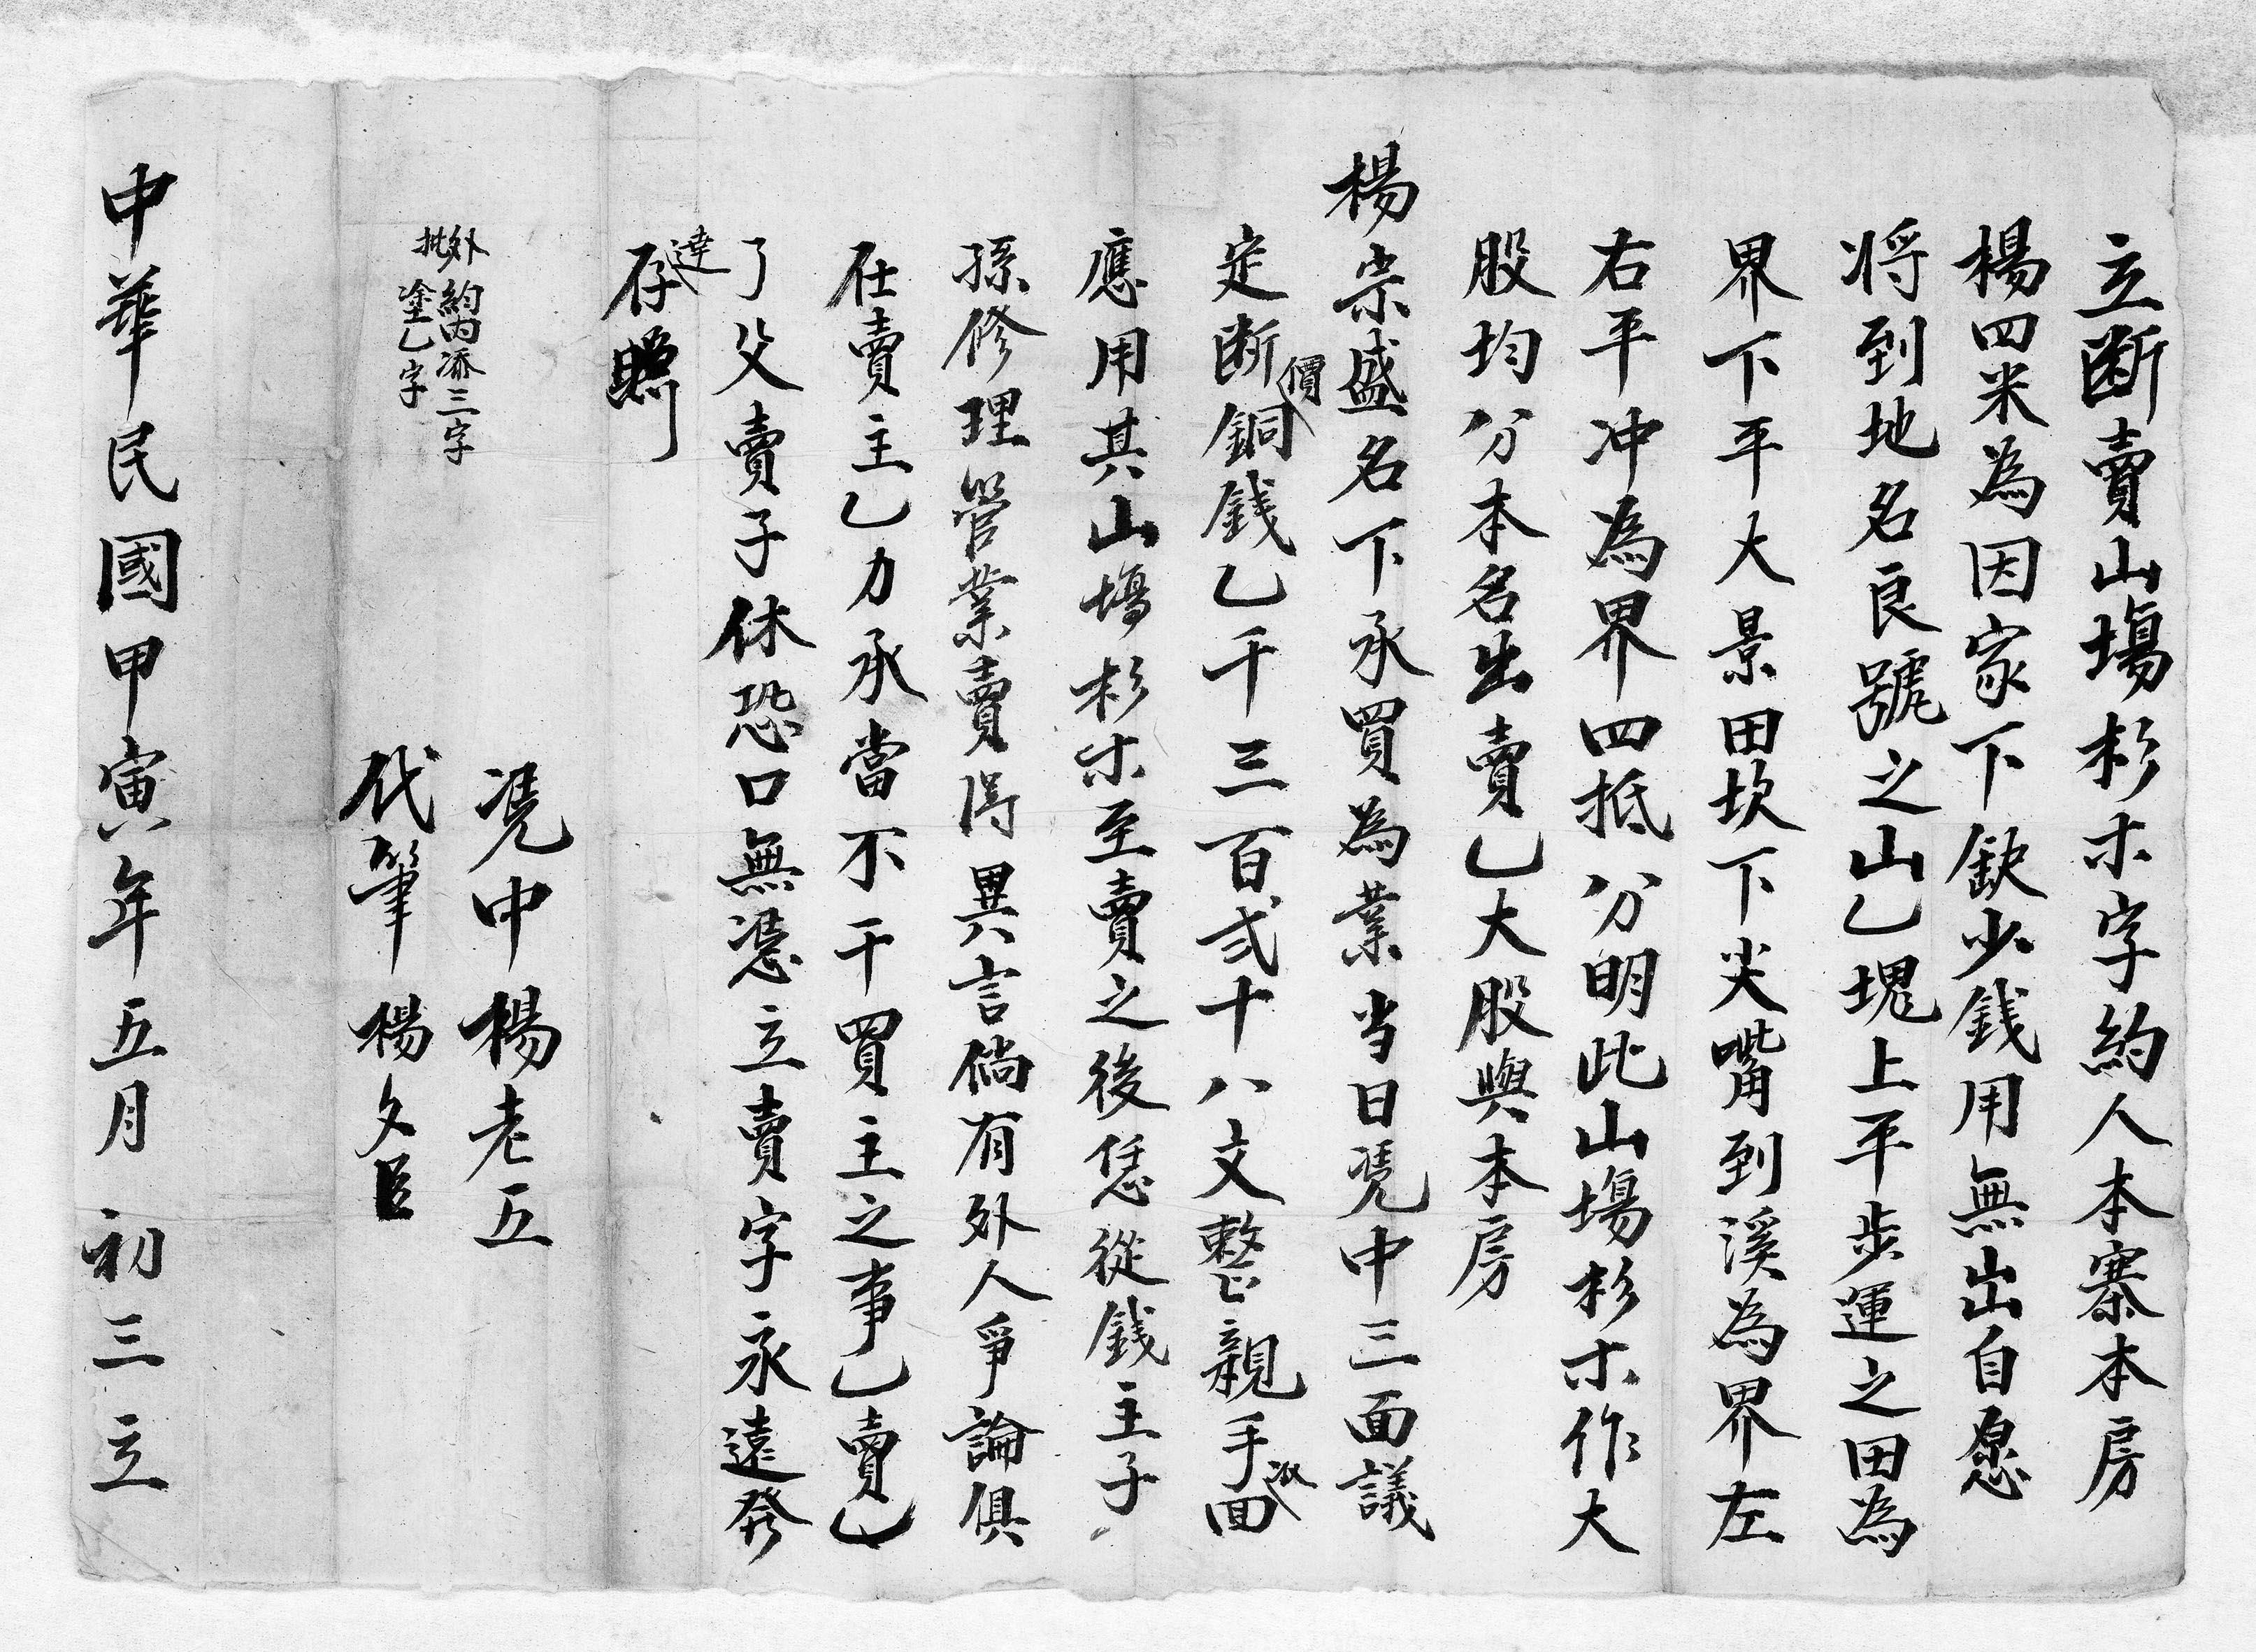 立断賣山塲杉木字約人本寨本房
楊四米為因家下缺少銭用無出自愿
将到地名良號之山乙塊上平步運之田為
界下平大景田坎下尖嘴到溪為界左
右平冲為界四抵分明此山塲杉木作大
股均分本名出賣乙大股與本房
楊宗盛名下承買為業当日凴中三面議
定断價銅銭乙千三百弍十八文整親手收回
應用其山塲杉木至賣之後恁從銭主子
孫修理管業賣得異言倘有外人爭論俱
在賣主乙力承當不干買主之事乙賣乙
了父賣子休恐口無凴立賣字永遠發達
存照
外批約内添三字
塗乙字
凴中楊老五
代筆楊文臣
中華民國甲寅年五月初三立